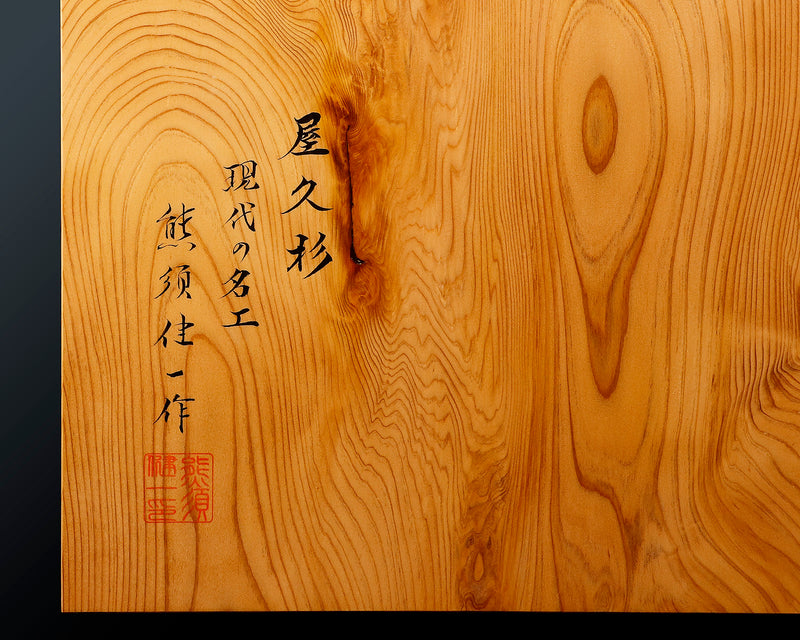 屋久杉
現代の名工
熊須健一作
熊須
健一印